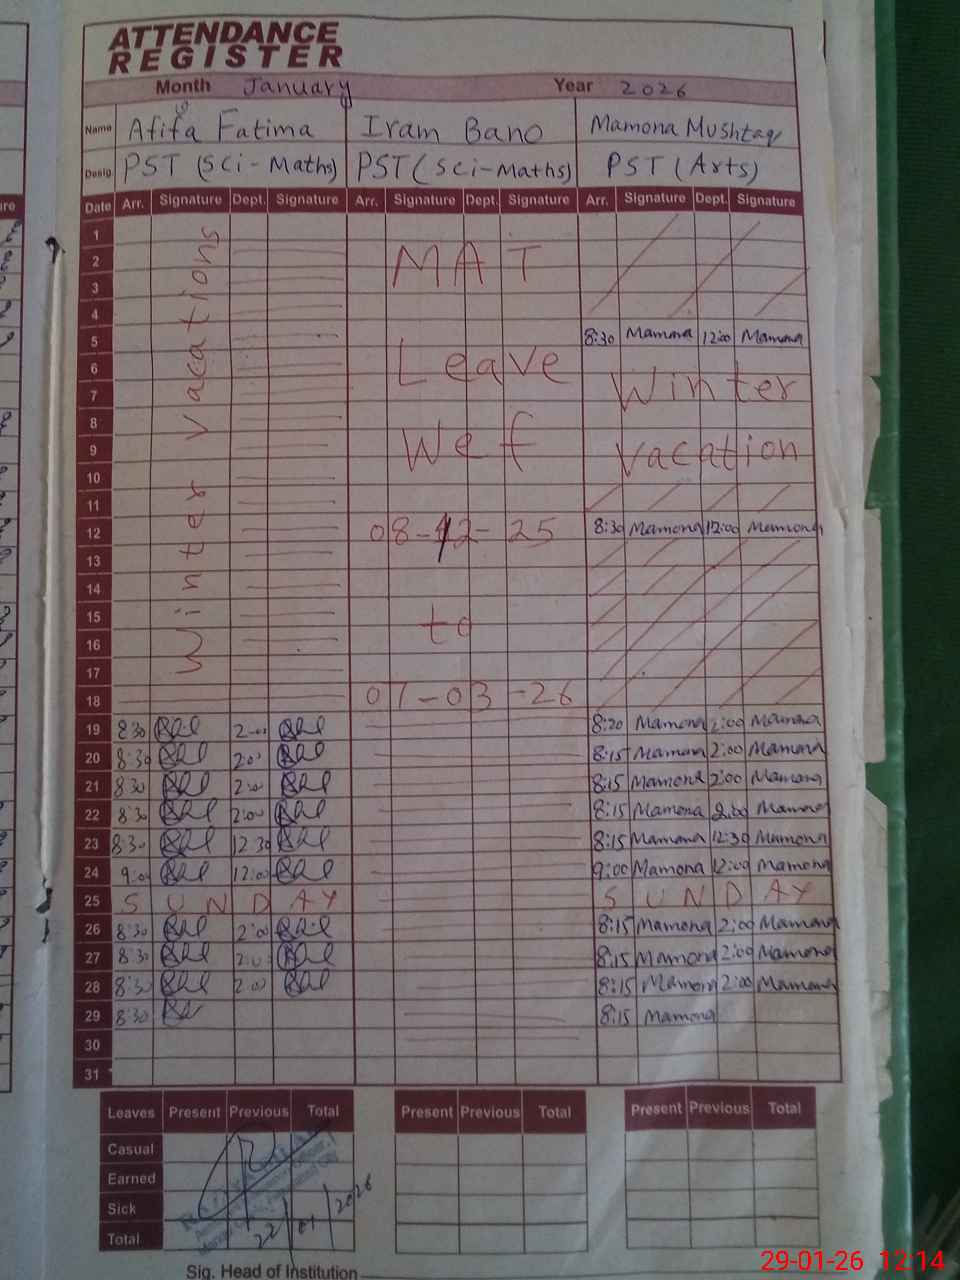 ATTENDANCE
REGISTER
Month January Year 2026
Name Afifa Fatima Iram Bano Mamona Mushtaq
Desig. PST (Sci-Maths) PST (Sci-Maths) PST (Arts)
Date Arr. Signature Dept. Signature Arr. Signature Dept. Signature Arr. Signature Dept. Signature
Winter Vacations
1
2 MAT
3
4
5 8:30 Mamona 12:00 Mamona
6 Leave
7 Winter
8
9 Wef Vacation
10
11
12 08-12-25 8:30 Mamona 12:00 Mamona
13
14
15 to
16
17
18 07-03-26
19 8:30 2:00 8:20 Mamona 2:00 Mamona
20 8:30 2:00 8:15 Mamona 2:00 Mamona
21 8:30 2:00 8:15 Mamona 2:00 Mamona
22 8:30 2:00 8:15 Mamona 2:00 Mamona
23 8:30 12:30 8:15 Mamona 12:30 Mamona
24 9:00 12:00 9:00 Mamona 12:00 Mamona
25 SUNDAY SUNDAY
26 8:30 2:00 8:15 Mamona 2:00 Mamona
27 8:30 2:00 8:15 Mamona 2:00 Mamona
28 8:30 2:00 8:15 Mamona 2:00 Mamona
29 8:30 8:15 Mamona
30
31
Leaves Present Previous Total Present Previous Total Present Previous Total
Casual
Earned
Sick
Total
22/01/2026
Sig. Head of Institution
29-01-26 12:14